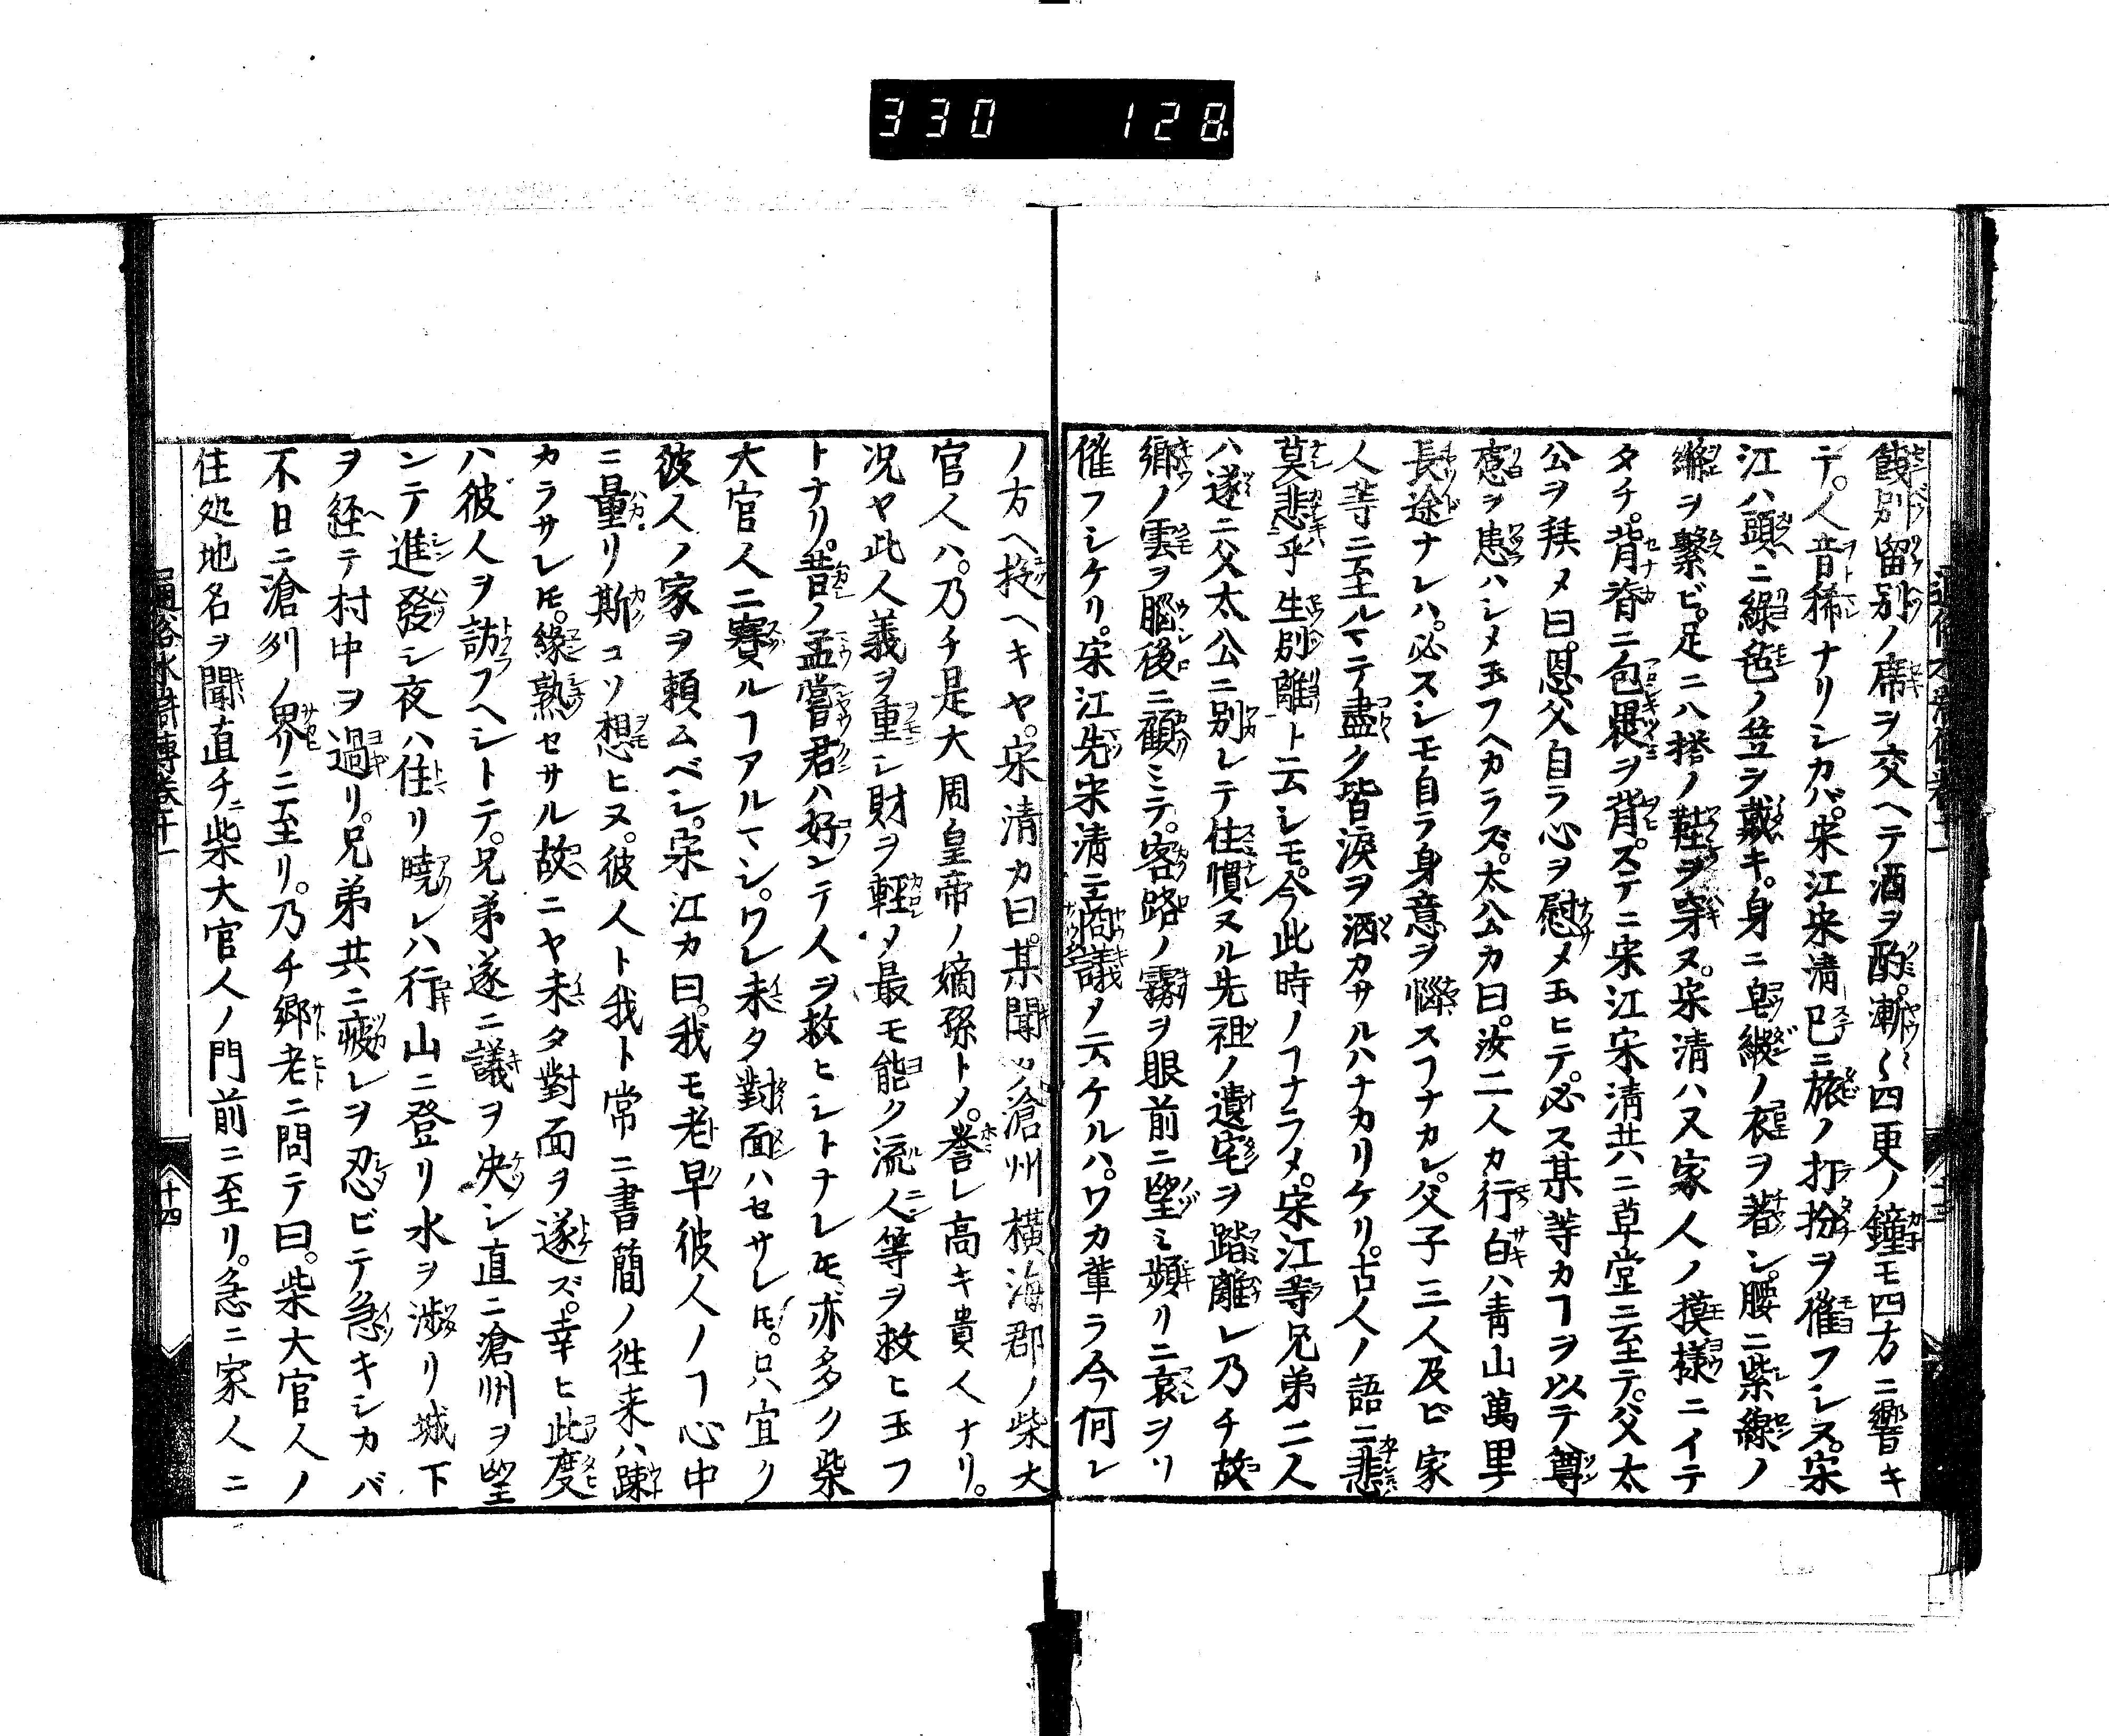 330 128
餞別留別ノ席ヲ交ヘテ酒ヲ酌。漸〱四更ノ鐘モ四方ニ響キ
テ。人音稀ナリシカバ。宋江宋清已ニ旅ノ打扮ヲ催フシス。宋
江ハ頭ニ緑毡ノ笠ヲ戴キ。身ニ皂緞ノ衣ヲ着シ。腰ニ紫線ノ
縧ヲ繋ビ。足ニ八搭ノ鞋ヲ穿ヌ。宋清ハ又家人ノ摸様ニイテ
タチ。背脊ニ包裹ヲ背。ステニ宋江宋清共ニ草堂ニ至テ。父太
公ヲ拜メ曰。恩父自ラ心ヲ慰メ玉ヒテ。必ス某等カヿヲ以テ尊
慮ヲ患ハシメ玉フヘカラズ。太公カ曰。汝二人カ行白ハ青山萬里
長途ナレハ。必スシモ自ラ身意ヲ惱スヿナカレ。父子三人及ビ家
人等ニ至ルマテ盡ク皆涙ヲ洒カサルハナカリケリ。古人ノ語ニ悲
莫悲乎生別離ト云シモ。今此時ノヿナラメ。宋江等兄弟二人
ハ遂ニ父太公ニ別レテ住慣ヌル先祖ノ遺宅ヲ踏離レ乃チ故
郷ノ雲ヲ腦後ニ顧ミテ。客路ノ霧ヲ眼前ニ望ミ頻リニ哀ヲソ
催フシケリ。宋江先宋清ニ啇議メ云ケルハ。ワカ輩ラ今何レ
ノ方ヘ投ヘキヤ。宋清カ曰。某聞ク滄州横海郡ノ柴大
官人ハ。乃チ是大周皇帝ノ嫡孫トメ。誉レ高キ貴人ナリ。
况ヤ此人義ヲ重シ財ヲ輕メ最モ能ク流人等ヲ救ヒ玉フ
トナリ。昔ノ孟嘗君ハ好ンテ人ヲ救ヒシトナレ𪜈。亦多ク柴
大官人ニ賽ルヿアルマシ。ワレ未タ對面ハセサレ𪜈。只宜ク
彼人ノ家ヲ頼ムベシ。宋江カ曰。我モ老早彼人ノヿ心中
ニ量リ斯コソ想ヒヌ。彼人ト我ト常ニ書簡ノ徃来ハ踈
カラサレ𪜈。縁熟セサル故ニヤ未タ對面ヲ遂ズ。幸ヒ此度
ハ彼人ヲ訪フヘシトテ。兄弟遂ニ議ヲ决シ直ニ滄州ヲ望
ンテ進發シ夜ハ住リ曉レハ行山ニ登リ水ヲ渉リ城下
ヲ経テ村中ヲ過リ。兄弟共ニ疲レヲ忍ビテ急キシカバ
不日ニ滄州ノ界リニ至リ。乃チ郷老ニ問テ曰。柴大官人ノ
住処地名ヲ聞直チニ柴大官人ノ門前ニ至リ。急ニ家人ニ
通俗水滸傳卷十一
十四